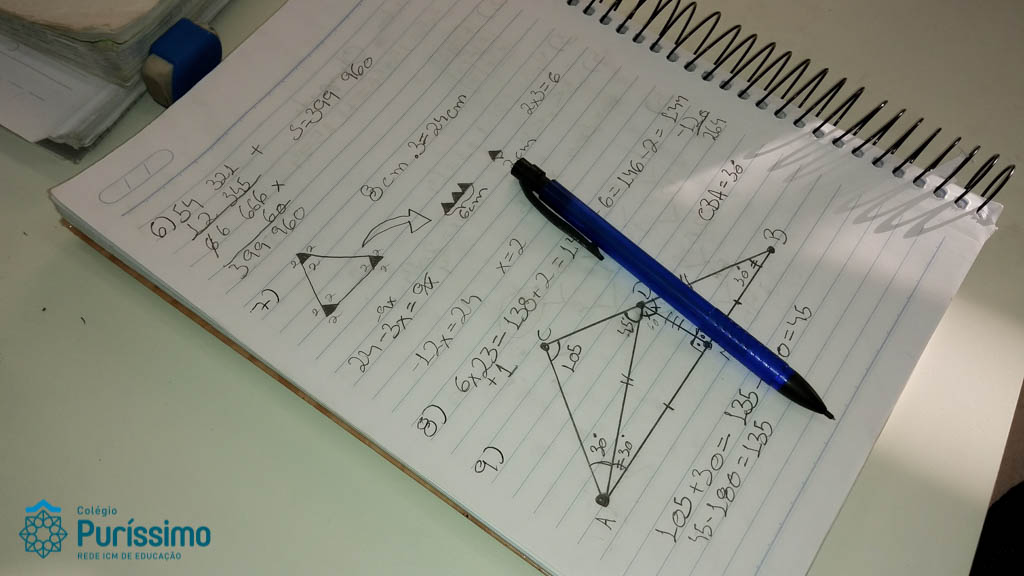 11
6) 54 321 +
12 345
66 666 x
60
399 960
S=399 960
7)
2 2
2 2
2 2
8cm .3=24cm
6cm
2x3=6
24-3x=9x
-9x
-12x=24
x=2
8) 6x23=138+2=
+1
6=146-2=144
9)
A
B
C
D
105
45
30°
30°
30°
CBA=30°
105+30=135
45-180=135
=45
Colégio
Puríssimo
REDE ICM DE EDUCAÇÃO